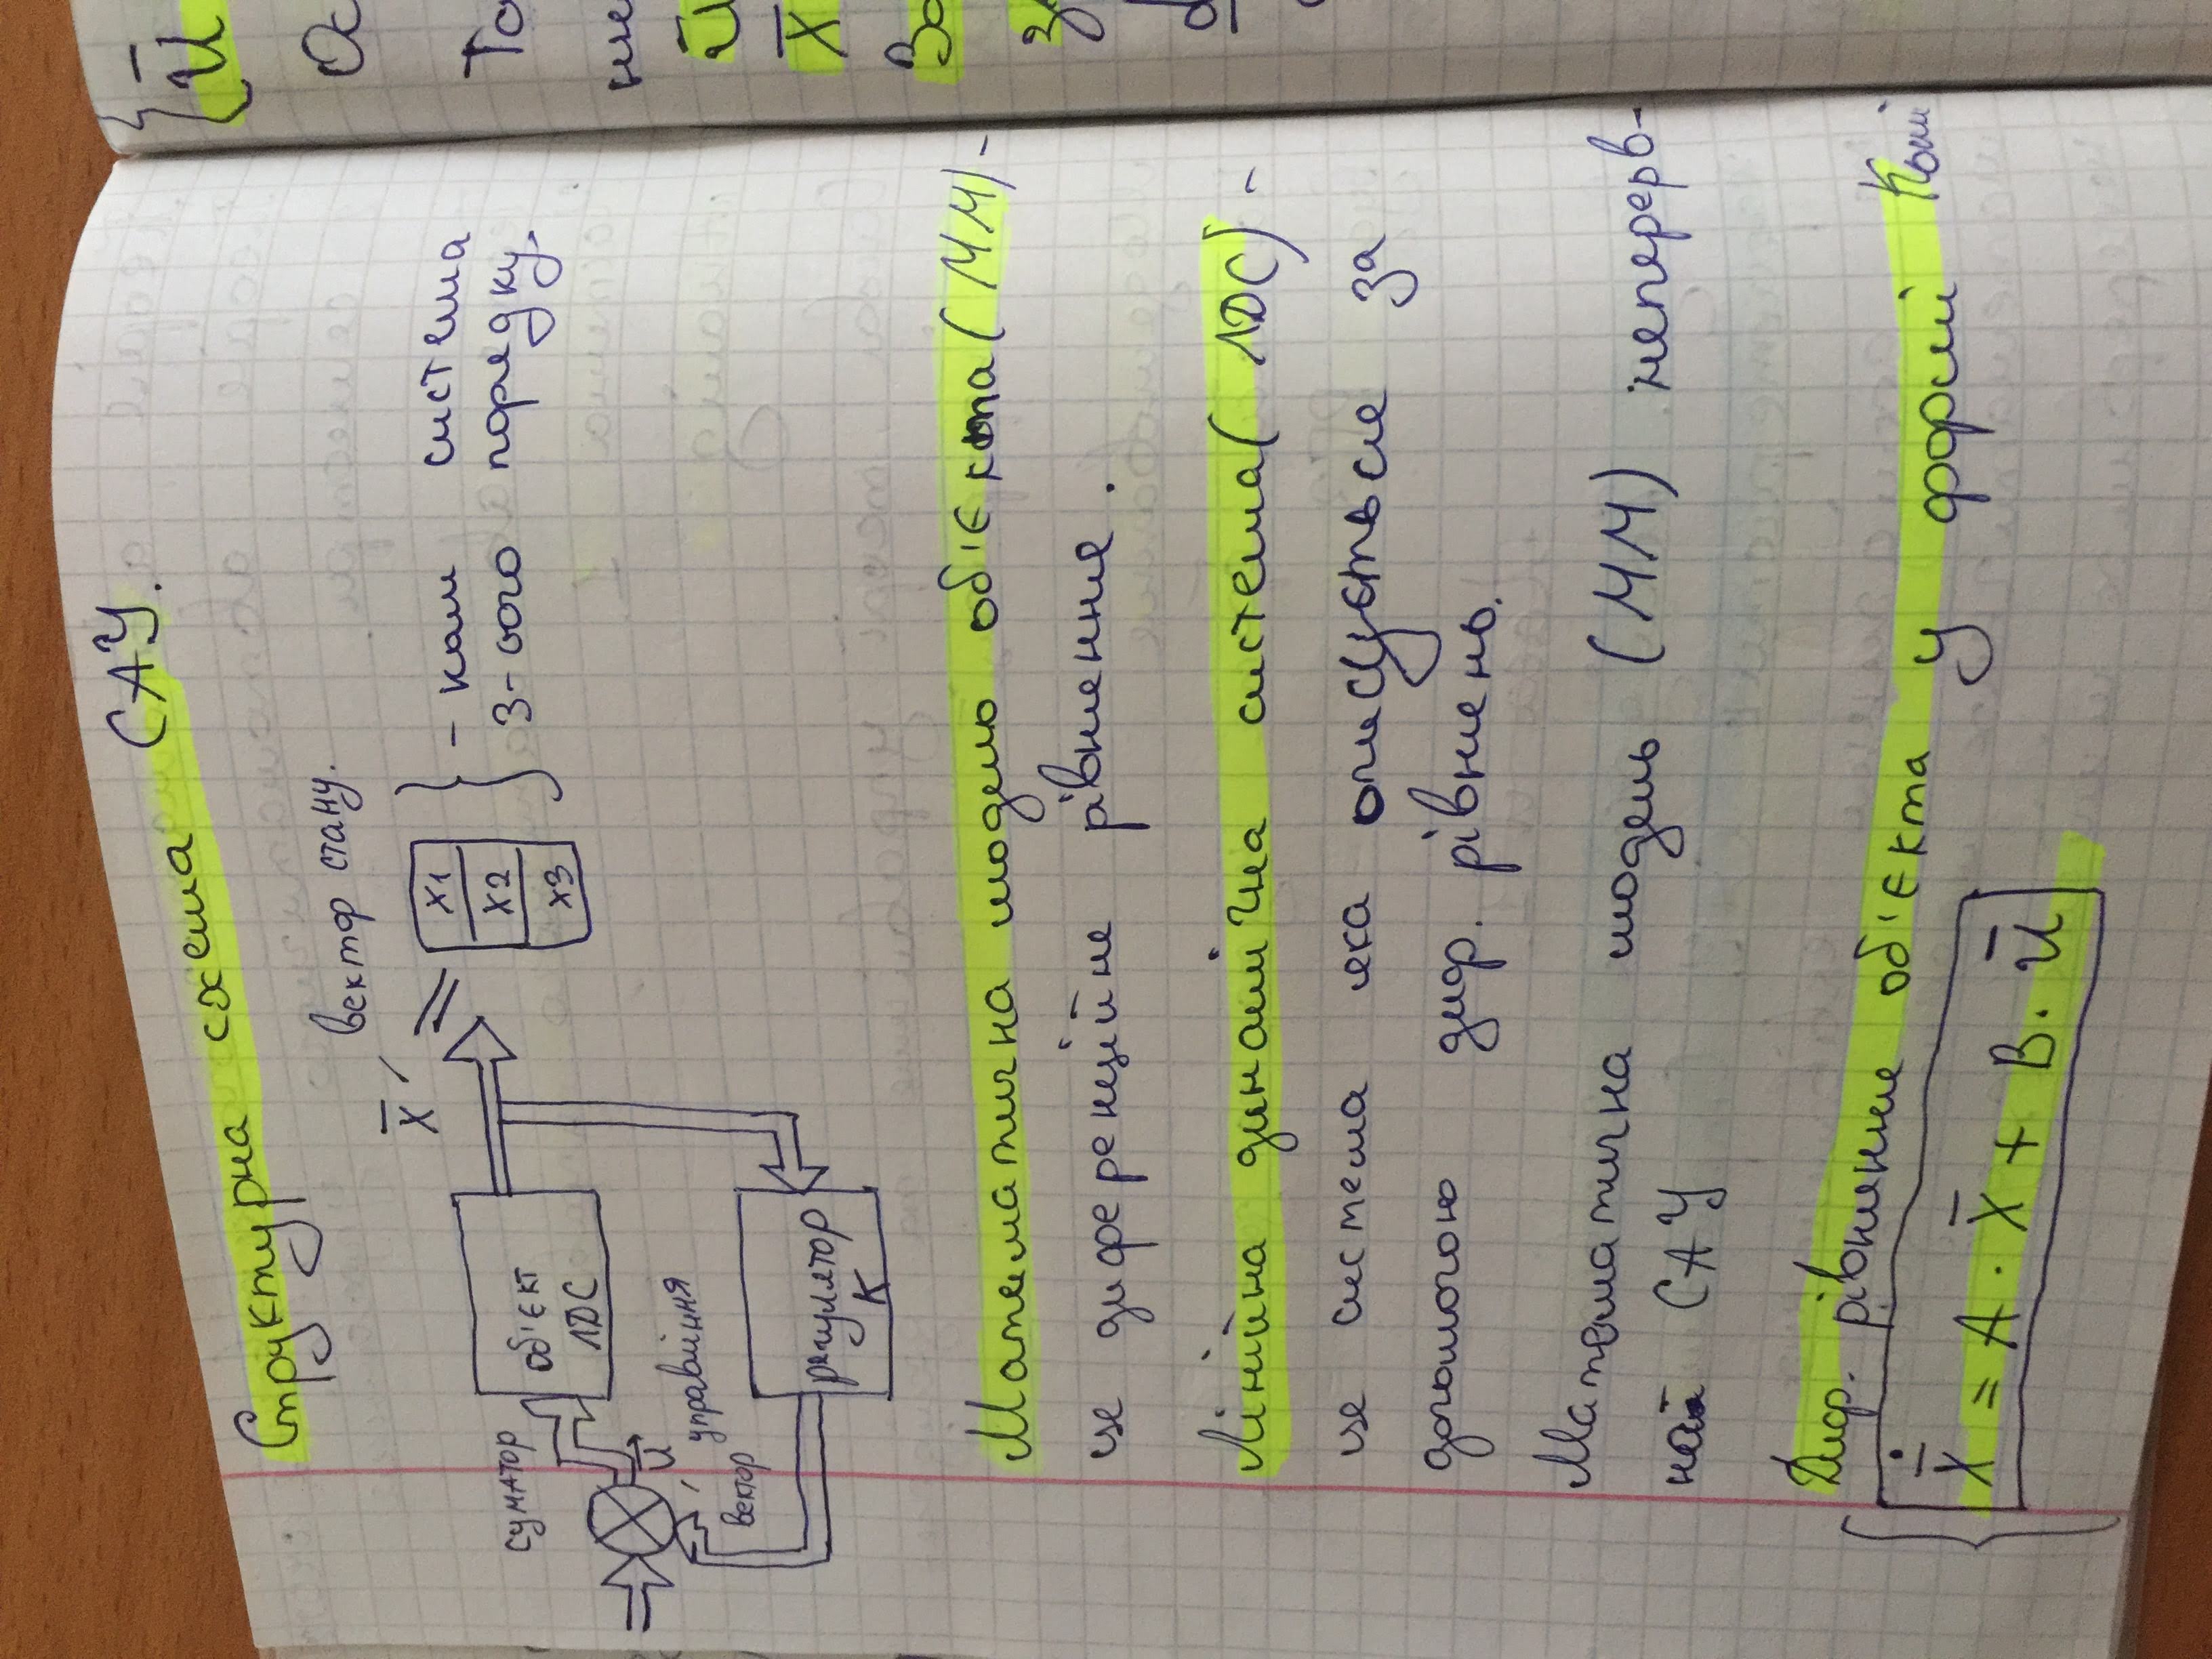 Структурна схема САУ.
вектор стану.
X̅
x1
x2
x3
- коли система
3-ього порядку.
суматор
об'єкт
ЛДС
u
вектор управління
регулятор
K
Математична модель об'єкта (ММ) -
це диференційне рівняння.
Лінійна динамічна система (ЛДС) -
це система яка описується за
допомогою диф. рівнень.
Математична модель (ММ) неперерв-
ної САУ
Диф. рівняння об'єкта у формі Коші
Ẋ̅ = A · X̅ + B · u̅
u̅
Ос
То
u̅
X̅
За